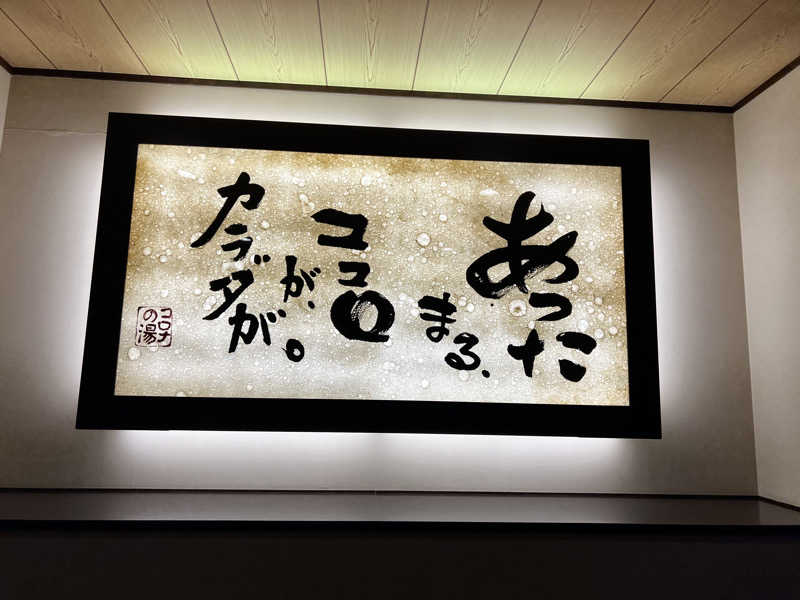 あった
まる、
ココロ
が、
カラダ
が。
コロナ
の湯